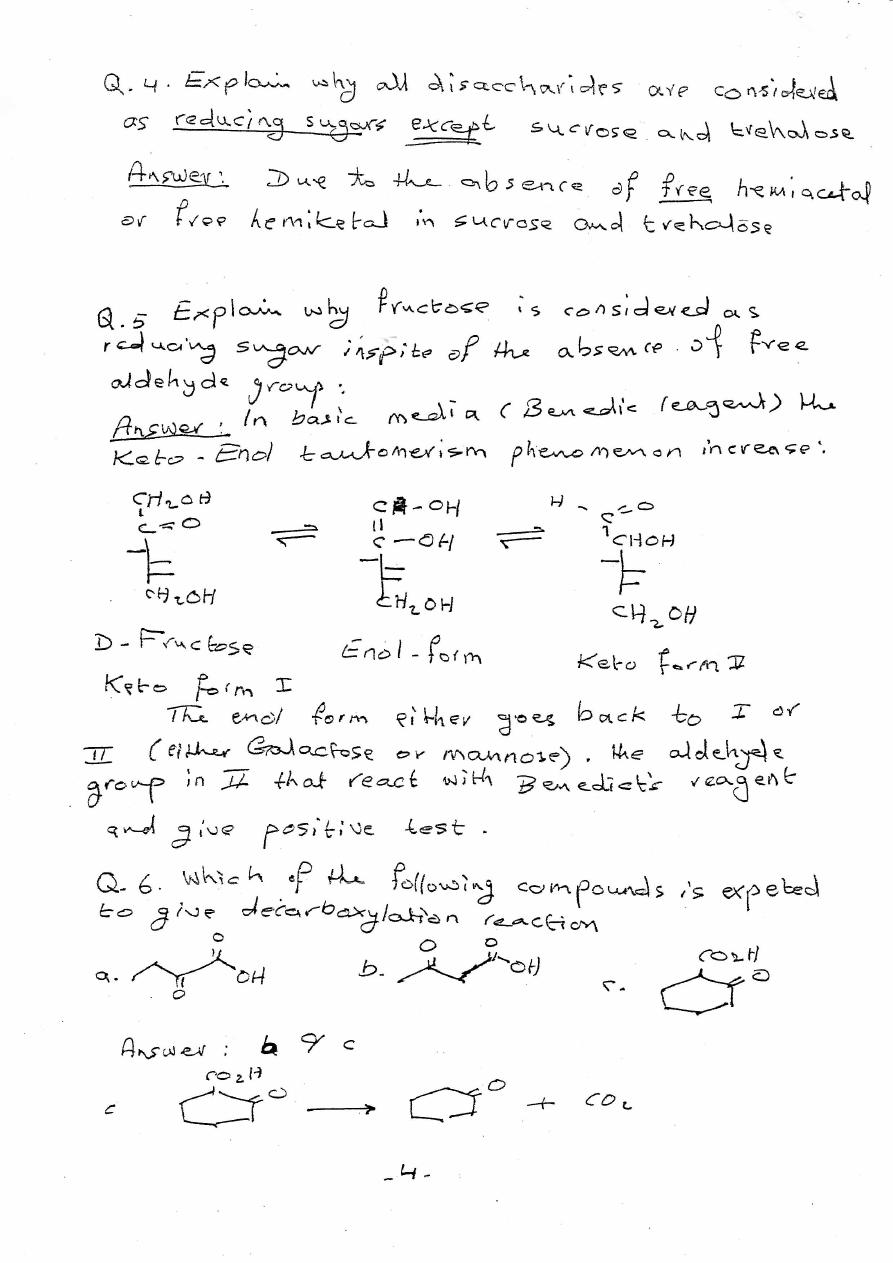 Q.4. Explain why all disaccharides are considered
as reducing sugars except sucrose and trehalose
Answer: Due to the absence of free hemiacetal
or free hemiketal in sucrose and trehalose
Q.5 Explain why fructose is considered as
reducing sugar inspite of the absence of free
aldehyde group:
Answer: In basic media (Benedic reagent) the
Keto-Enol tautomerism phenomenon increase:
CH2OH
C=O
CH2OH
C-OH
C-OH
CH2OH
H C=O
CHOH
CH2OH
D-Fructose Enol-form Keto form II
Keto form I
The enol form either goes back to I or
II (either Galactose or mannose). the aldehyde
group in II that react with Benedict's reagent
and give positive test.
Q-6. Which of the following compounds is expeted
to give decarboxylation reaction
a. O OH O
b. O O OH
c. CO2H O
Answer: b & c
c CO2H O → O + CO2
-4-